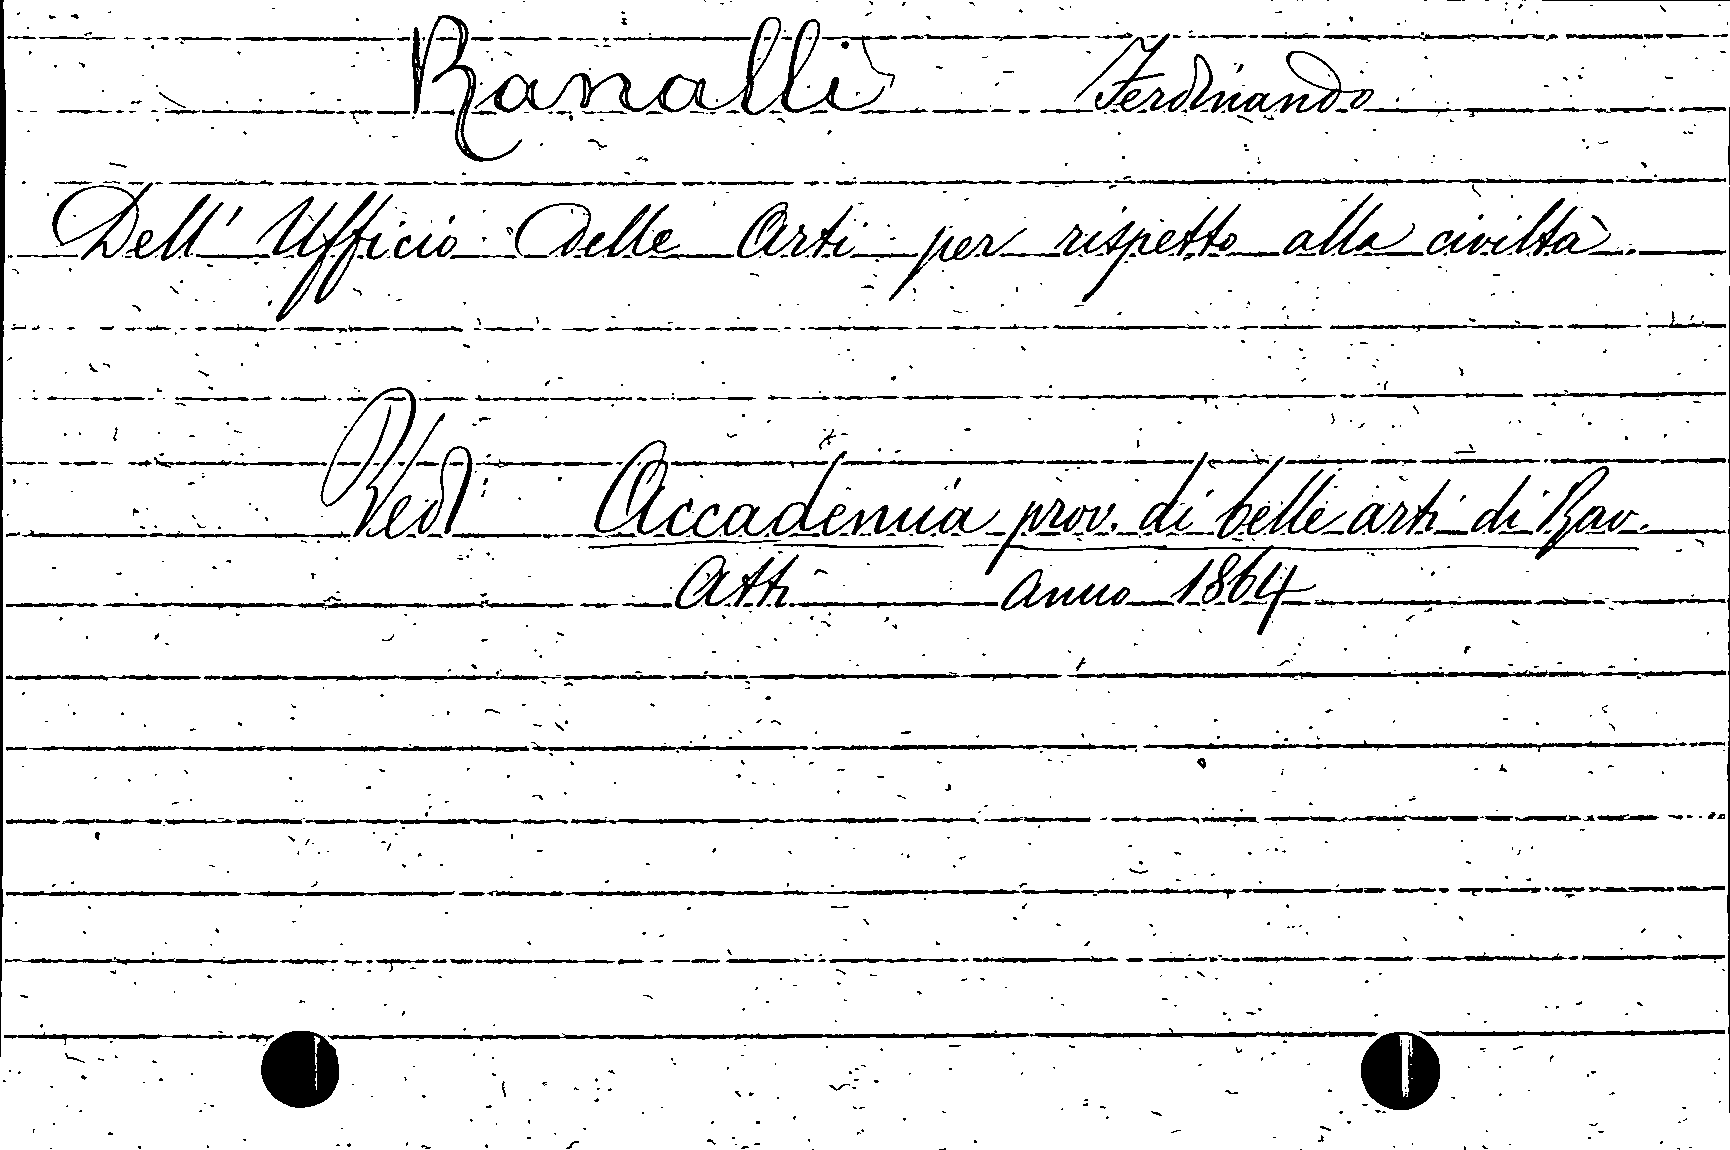 Ranalli Ferdinando
Dell' Ufficio delle Arti per rispetto alla civiltà.
Ved. Accademia prov. di belle arti di Rav.
Atti anno 1864